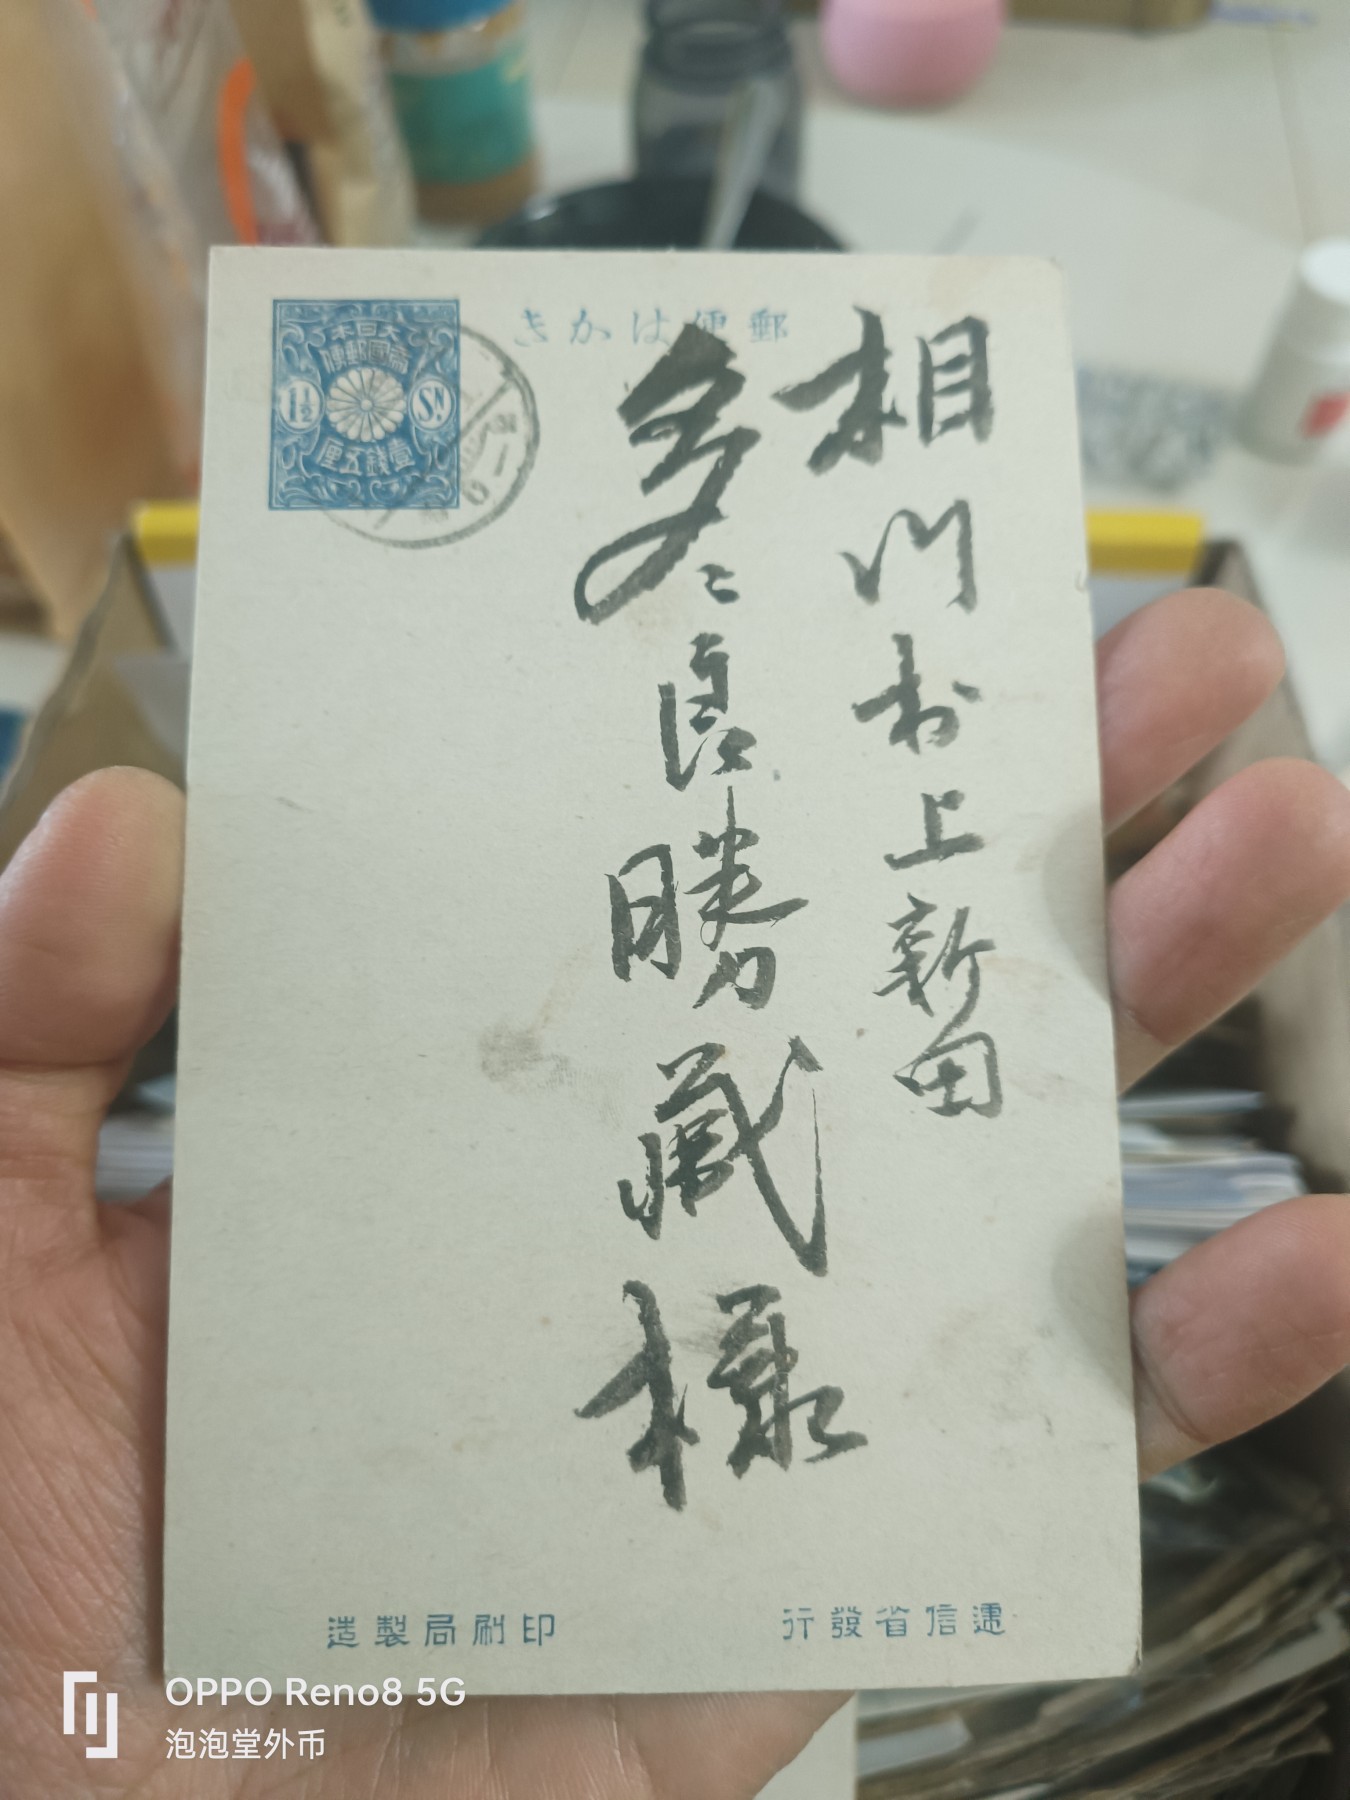 郵便はかき
大日本
帝國郵便
1½
Sn.
壹錢五厘
相川村上新田
多々良勝藏様
逓信省發行
印刷局製造
OPPO Reno8 5G
泡泡堂外币